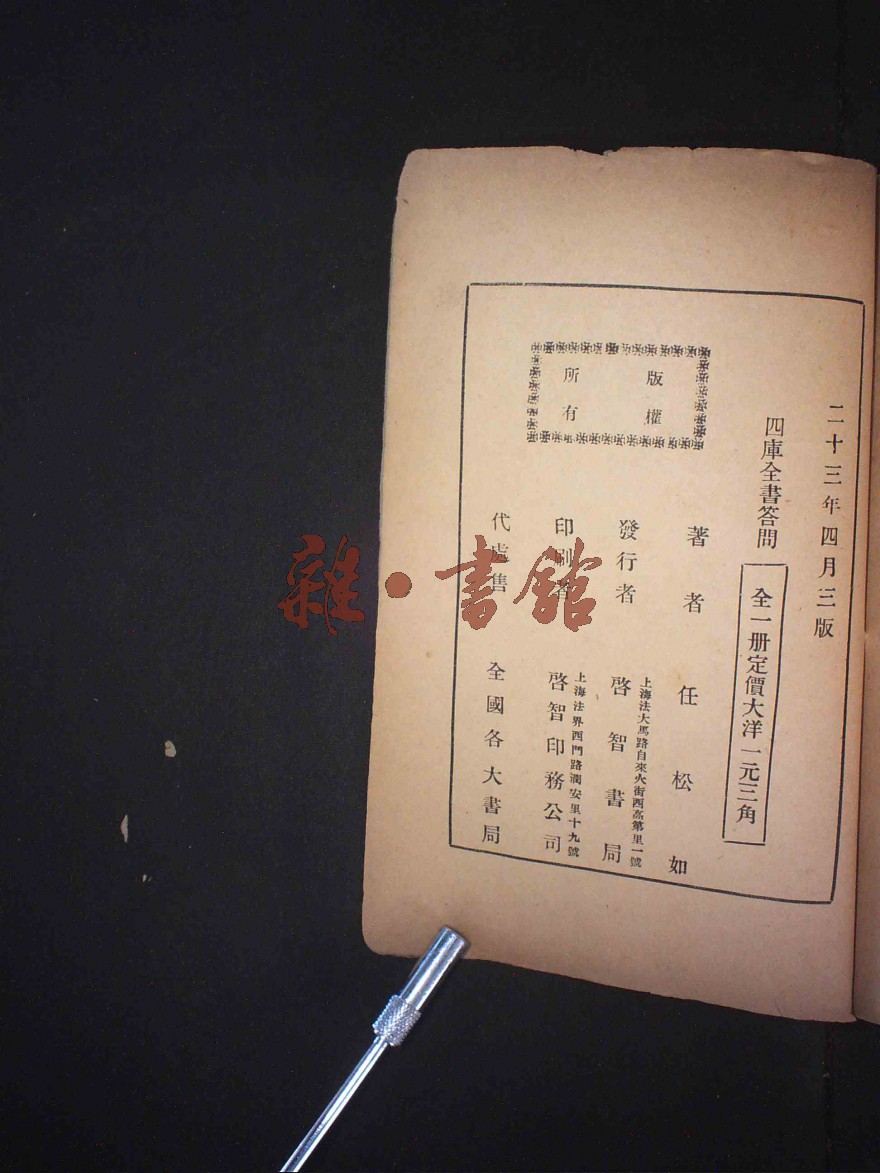 二十三年四月三版
四庫全書答問
全一册定價大洋一元三角
版權
所有
著者 任松如
上海法大馬路自來火街西高第里一號
發行者 啓智書局
上海法界西門路潤安里十九號
印刷者 啓智印務公司
代處售 全國各大書局
雜·書館